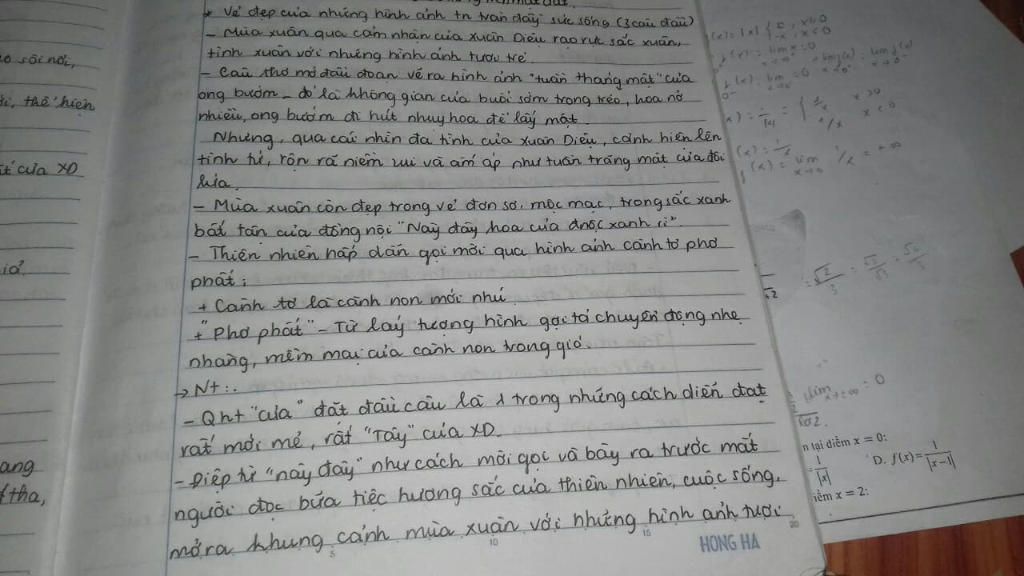 * Vẻ đẹp của những hình ảnh tn tràn đầy sức sống (3 câu đầu)
- Mùa xuân qua cảm nhận của Xuân Diệu rạo rực sắc xuân,
tình xuân với những hình ảnh tươi trẻ.
- Câu thơ mở đầu đoạn vẽ ra hình ảnh "tuần tháng mật" của
ong bướm - đó là không gian của buổi sớm trong trẻo, hoa nở
nhiều, ong bướm đi hút nhụy hoa để lấy mật.
Nhưng, qua cái nhìn đa tình của Xuân Diệu, cảnh hiện lên
tình tứ, rộn rã niềm vui và ấm áp như tuần trăng mật của đôi
lứa.
- Mùa xuân còn đẹp trong vẻ đơn sơ, mộc mạc, trong sắc xanh
bất tận của đồng nội "Này đây hoa của đồng xanh rì".
- Thiên nhiên hấp dẫn gọi mời qua hình ảnh cành tơ phơ
phất:
+ Cành tơ là cành non mới nhú.
+ "Phơ phất" - Từ láy tượng hình gợi tả chuyển động nhẹ
nhàng, mềm mại của cành non trong gió.
→ Nt:.
- Qht "của" đặt đầu câu là 1 trong những cách diễn đạt
rất mới mẻ, rất "Tây" của XD.
- Điệp từ "này đây" như cách mời gọi và bày ra trước mắt
người đọc bữa tiệc hương sắc của thiên nhiên, cuộc sống,
mở ra khung cảnh mùa xuân với những hình ảnh tươi
5 10 15 20
HONG HA
sôi nổi,
thể hiện
của XD
giả.
ang
tha,
lim = 0
n tại điểm x = 0:
1/|x| D. f(x) = 1/|x-1|
iểm x = 2: